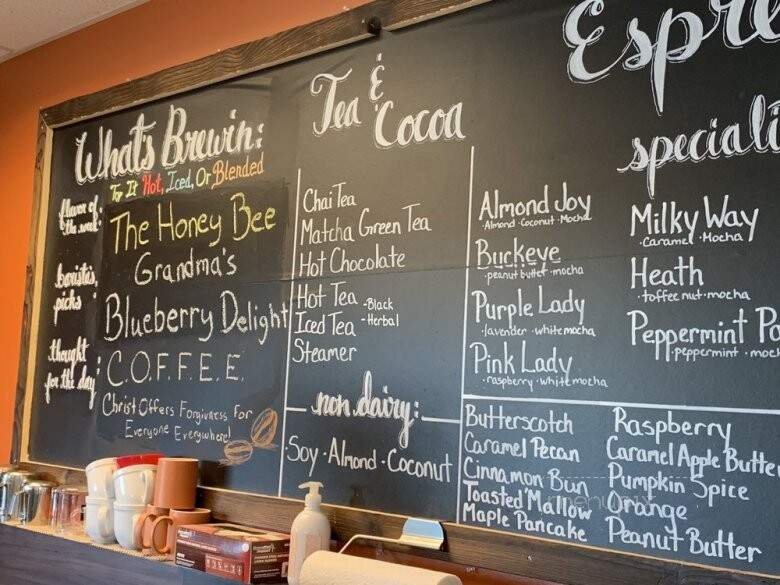 What's Brewin:
Try It Hot, Iced, Or Blended
flavor of
the week:
The Honey Bee
Grandma's
barista's
picks
Blueberry Delight
thought
for the day:
C.O.F.F.E.E.
Christ Offers Forgivness For
Everyone Everywhere!
Tea & Cocoa
Chai Tea
Matcha Green Tea
Hot Chocolate
Hot Tea
Iced Tea
-Black
-Herbal
Steamer
non dairy:
Soy · Almond · Coconut
Espre
speciali
Almond Joy
·Almond·Coconut·Mocha
Buckeye
·peanut butter·mocha
Purple Lady
·lavender·white mocha
Pink Lady
·raspberry·white mocha
Milky Way
·Caramel·Mocha
Heath
·toffee nut·mocha
Peppermint Pa
·peppermint·moc
Butterscotch
Caramel Pecan
Cinnamon Bun
Toasted Mallow
Maple Pancake
Raspberry
Caramel Apple Butter
Pumpkin Spice
Orange
Peanut Butter